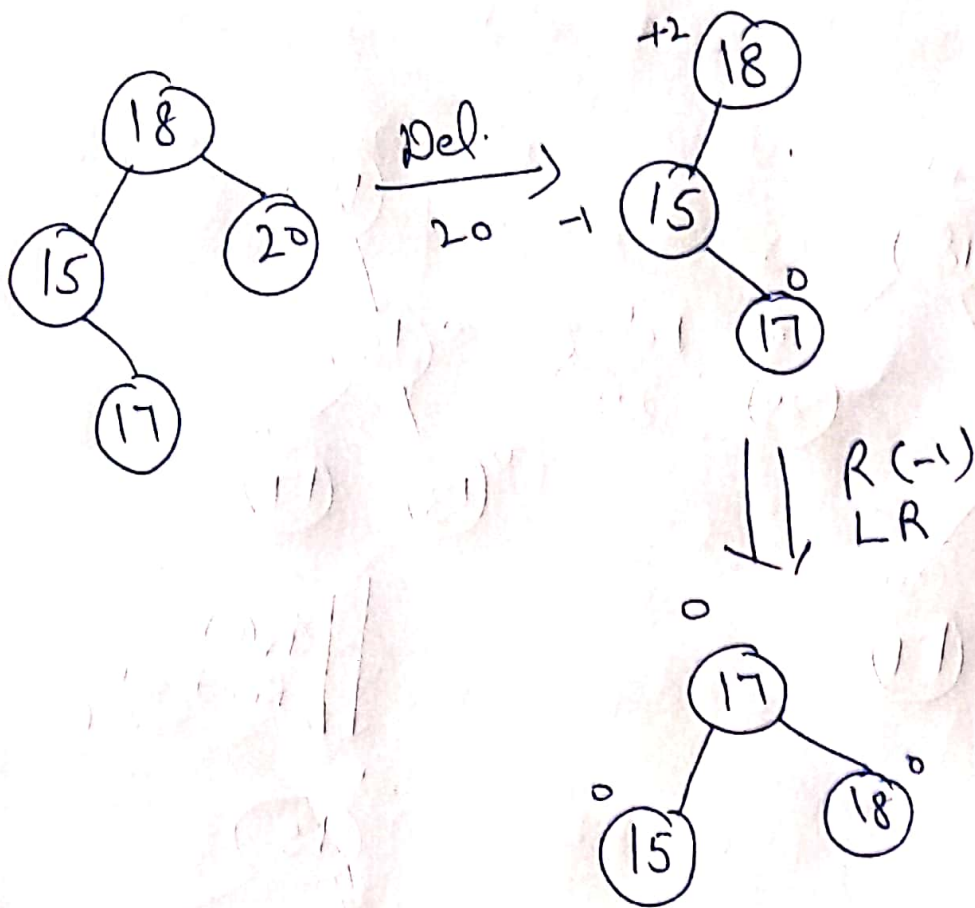 18
15
20
17
Del.
20
+2
18
-1
15
0
17
R (-1)
LR
0
17
0
15
0
18